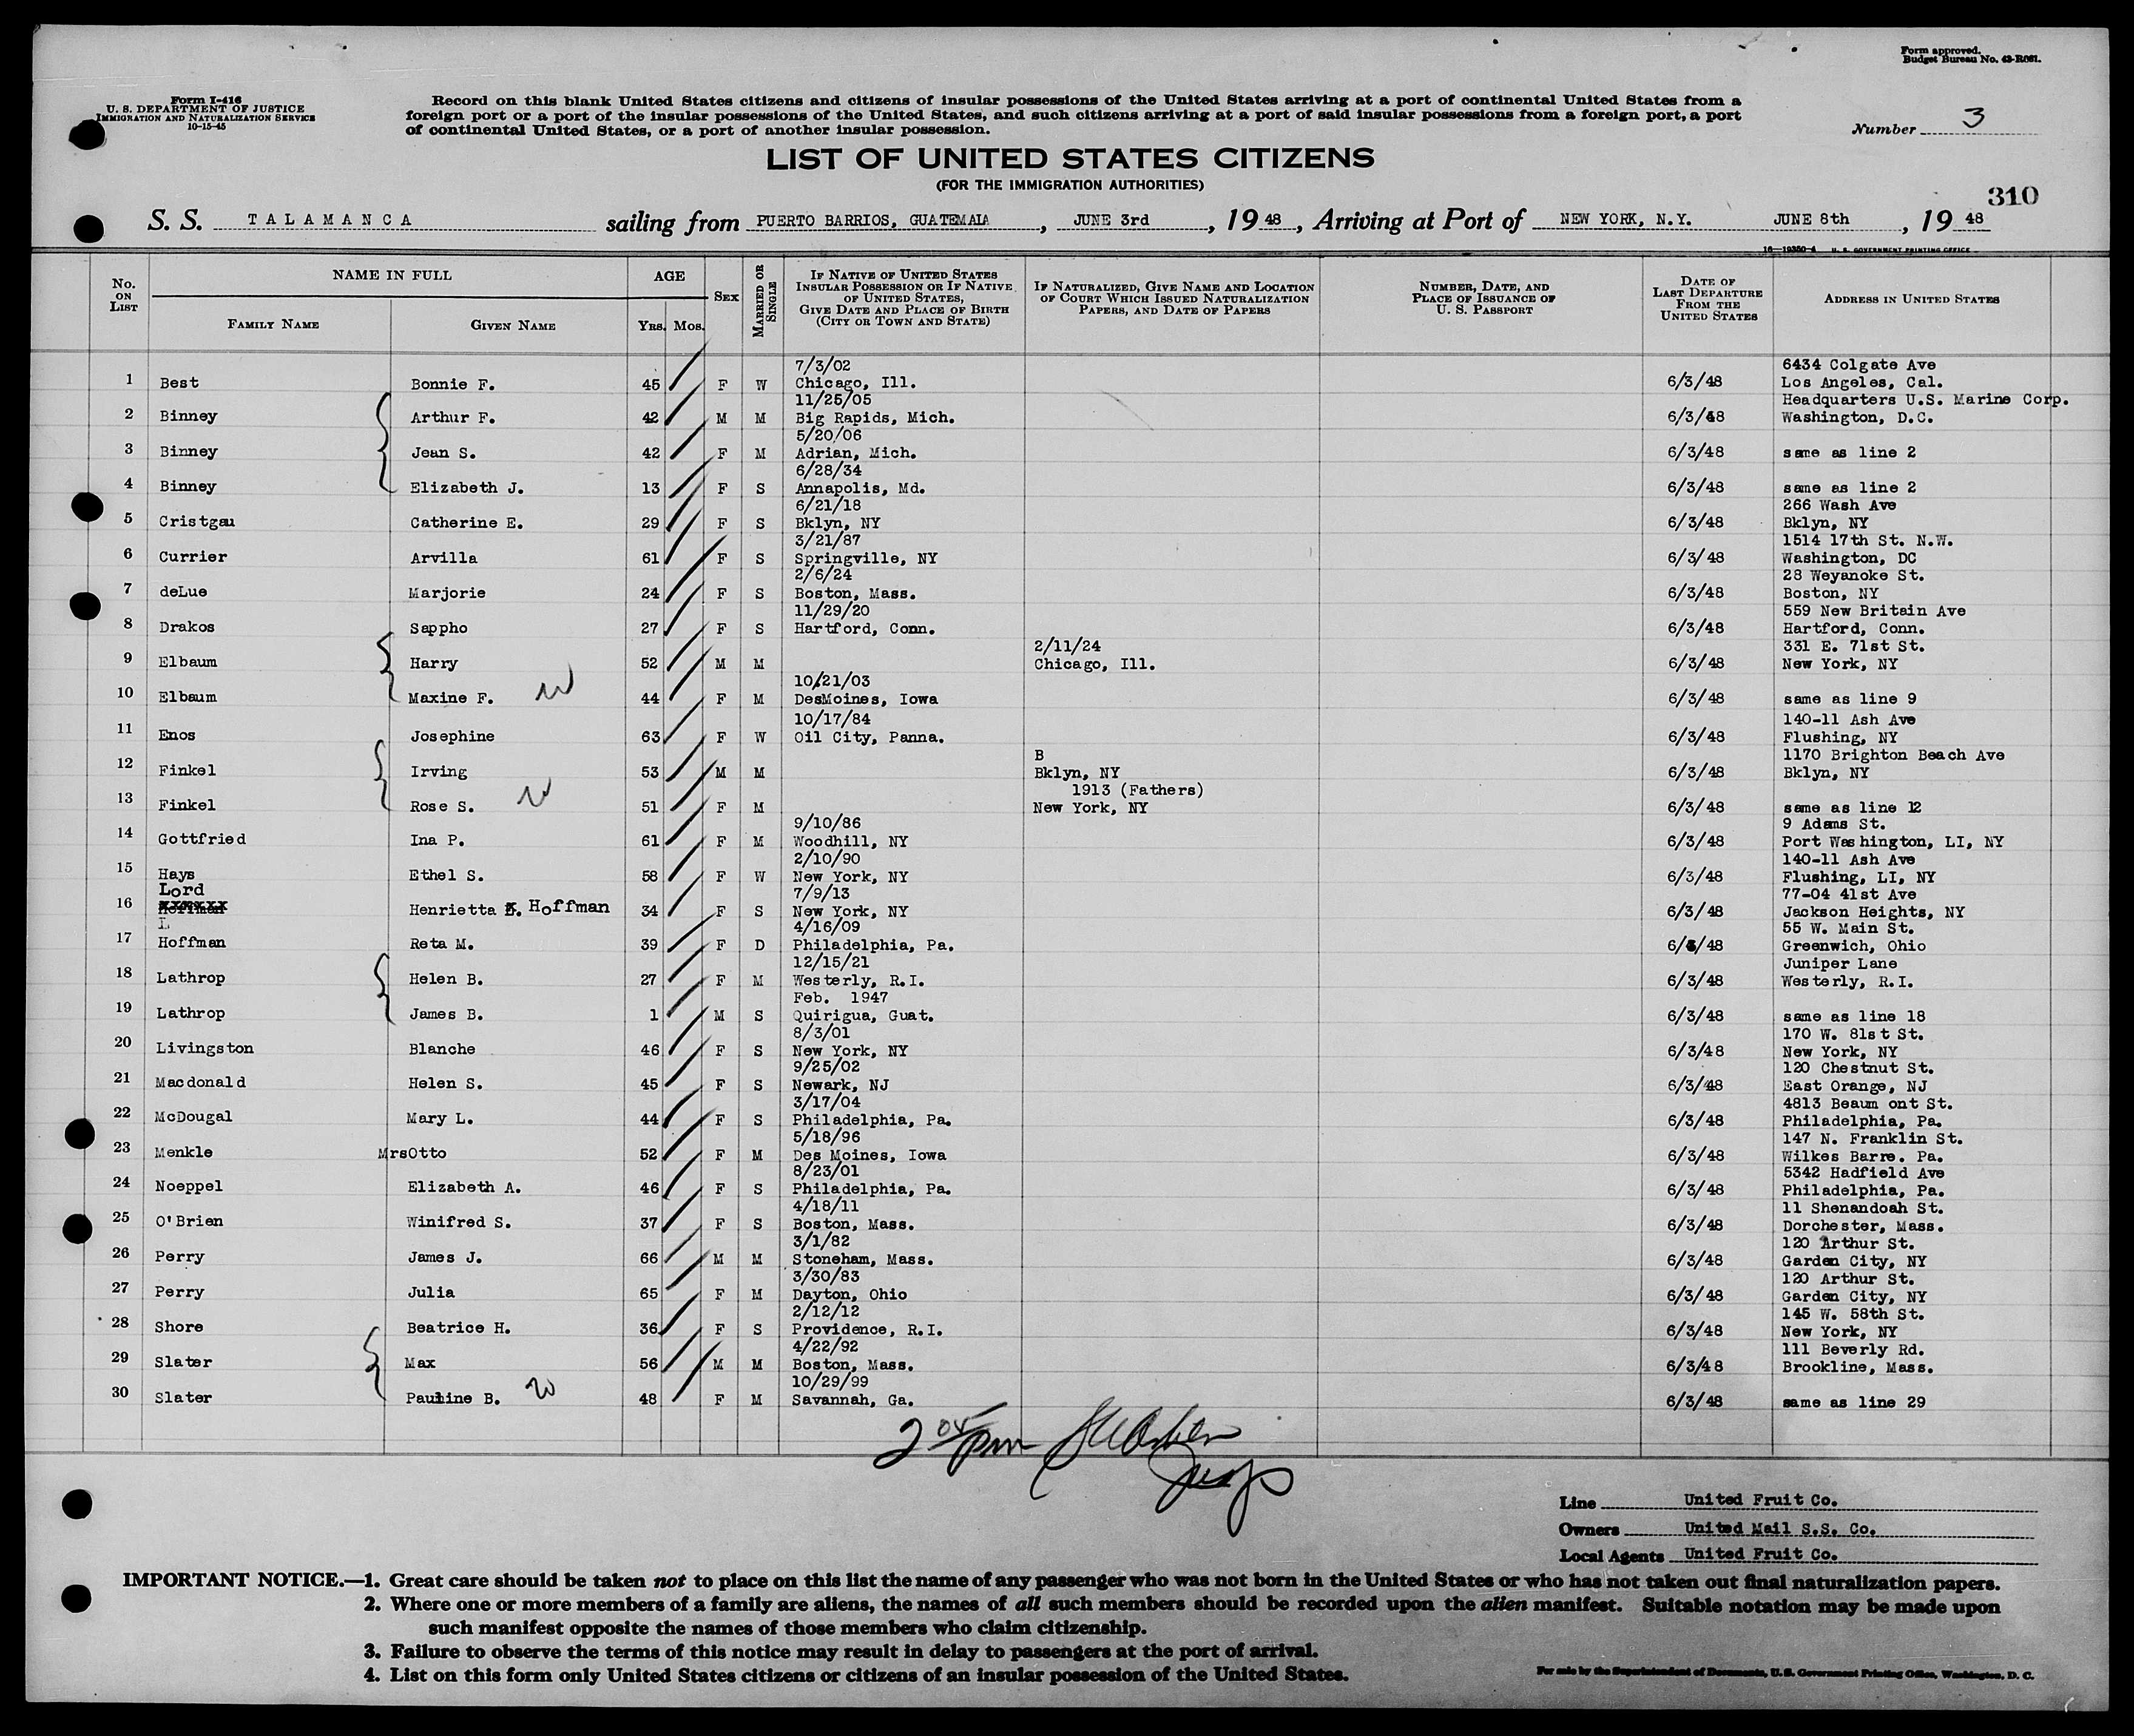 Form approved.
Budget Bureau No. 43-R081.
Form I-416
U. S. DEPARTMENT OF JUSTICE
IMMIGRATION AND NATURALIZATION SERVICE
10-15-45
Record on this blank United States citizens and citizens of insular possessions of the United States arriving at a port of continental United States from a
foreign port or a port of the insular possessions of the United States, and such citizens arriving at a port of said insular possessions from a foreign port, a port
of continental United States, or a port of another insular possession.
Number 3
LIST OF UNITED STATES CITIZENS
(FOR THE IMMIGRATION AUTHORITIES)
310
S. S. TALAMANCA sailing from PUERTO BARRIOS, GUATEMALA, JUNE 3rd, 19 48, Arriving at Port of NEW YORK, N.Y. JUNE 8th, 19 48
16—19350-4 U. S. GOVERNMENT PRINTING OFFICE
No. ON LIST
NAME IN FULL
FAMILY NAME
GIVEN NAME
AGE
YRS. MOS.
SEX
MARRIED OR SINGLE
IF NATIVE OF UNITED STATES INSULAR POSSESSION OR IF NATIVE OF UNITED STATES, GIVE DATE AND PLACE OF BIRTH (CITY OR TOWN AND STATE)
IF NATURALIZED, GIVE NAME AND LOCATION OF COURT WHICH ISSUED NATURALIZATION PAPERS, AND DATE OF PAPERS
NUMBER, DATE, AND PLACE OF ISSUANCE OF U. S. PASSPORT
DATE OF LAST DEPARTURE FROM THE UNITED STATES
ADDRESS IN UNITED STATES
7/3/02 6434 Colgate Ave
1 Best Bonnie F. 45 F W Chicago, Ill. 6/3/48 Los Angeles, Cal.
11/25/05 Headquarters U.S. Marine Corp.
2 Binney Arthur F. 42 M M Big Rapids, Mich. 6/3/48 Washington, D.C.
5/20/06
3 Binney Jean S. 42 F M Adrian, Mich. 6/3/48 same as line 2
6/28/34
4 Binney Elizabeth J. 13 F S Annapolis, Md. 6/3/48 same as line 2
6/21/18 266 Wash Ave
5 Cristgau Catherine E. 29 F S Bklyn, NY 6/3/48 Bklyn, NY
3/21/87 1514 17th St. N.W.
6 Currier Arvilla 61 F S Springville, NY 6/3/48 Washington, DC
2/6/24 28 Weyanoke St.
7 deLue Marjorie 24 F S Boston, Mass. 6/3/48 Boston, NY
11/29/20 559 New Britain Ave
8 Drakos Sappho 27 F S Hartford, Conn. 6/3/48 Hartford, Conn.
2/11/24 331 E. 71st St.
9 Elbaum Harry 52 M M Chicago, Ill. 6/3/48 New York, NY
10/21/03
10 Elbaum Maxine F. w 44 F M DesMoines, Iowa 6/3/48 same as line 9
10/17/84 140-11 Ash Ave
11 Enos Josephine 63 F W Oil City, Panna. 6/3/48 Flushing, NY
B 1170 Brighton Beach Ave
12 Finkel Irving 53 M M Bklyn, NY 6/3/48 Bklyn, NY
1913 (Fathers)
13 Finkel Rose S. w 51 F M New York, NY 6/3/48 same as line 12
9/10/86 9 Adams St.
14 Gottfried Ina P. 61 F M Woodhill, NY 6/3/48 Port Washington, LI, NY
2/10/90 140-11 Ash Ave
15 Hays Ethel S. 58 F W New York, NY 6/3/48 Flushing, LI, NY
Lord 7/9/13 77-04 41st Ave
16 Hoffman Henrietta Hoffman 34 F S New York, NY 6/3/48 Jackson Heights, NY
L 4/16/09 55 W. Main St.
17 Hoffman Reta M. 39 F D Philadelphia, Pa. 6/3/48 Greenwich, Ohio
12/15/21 Juniper Lane
18 Lathrop Helen B. 27 F M Westerly, R.I. 6/3/48 Westerly, R.I.
Feb. 1947
19 Lathrop James B. 1 M S Quirigua, Guat. 6/3/48 same as line 18
8/3/01 170 W. 81st St.
20 Livingston Blanche 46 F S New York, NY 6/3/48 New York, NY
9/25/02 120 Chestnut St.
21 Macdonald Helen S. 45 F S Newark, NJ 6/3/48 East Orange, NJ
3/17/04 4813 Beaumont St.
22 McDougal Mary L. 44 F S Philadelphia, Pa. 6/3/48 Philadelphia, Pa.
5/18/96 147 N. Franklin St.
23 Menkle MrsOtto 52 F M Des Moines, Iowa 6/3/48 Wilkes Barre. Pa.
8/23/01 5342 Hadfield Ave
24 Noeppel Elizabeth A. 46 F S Philadelphia, Pa. 6/3/48 Philadelphia, Pa.
4/18/11 11 Shenandoah St.
25 O'Brien Winifred S. 37 F S Boston, Mass. 6/3/48 Dorchester, Mass.
3/1/82 120 Arthur St.
26 Perry James J. 66 M M Stoneham, Mass. 6/3/48 Garden City, NY
3/30/83 120 Arthur St.
27 Perry Julia 65 F M Dayton, Ohio 6/3/48 Garden City, NY
2/12/12 145 W. 58th St.
28 Shore Beatrice H. 36 F S Providence, R.I. 6/3/48 New York, NY
4/22/92 111 Beverly Rd.
29 Slater Max 56 M M Boston, Mass. 6/3/48 Brookline, Mass.
10/29/99
30 Slater Pauline B. w 48 F M Savannah, Ga. 6/3/48 same as line 29
2 04 pm
Line United Fruit Co.
Owners United Mail S.S. Co.
Local Agents United Fruit Co.
IMPORTANT NOTICE.—1. Great care should be taken not to place on this list the name of any passenger who was not born in the United States or who has not taken out final naturalization papers.
2. Where one or more members of a family are aliens, the names of all such members should be recorded upon the alien manifest. Suitable notation may be made upon
such manifest opposite the names of those members who claim citizenship.
3. Failure to observe the terms of this notice may result in delay to passengers at the port of arrival.
4. List on this form only United States citizens or citizens of an insular possession of the United States.
For sale by the Superintendent of Documents, U. S. Government Printing Office, Washington, D. C.